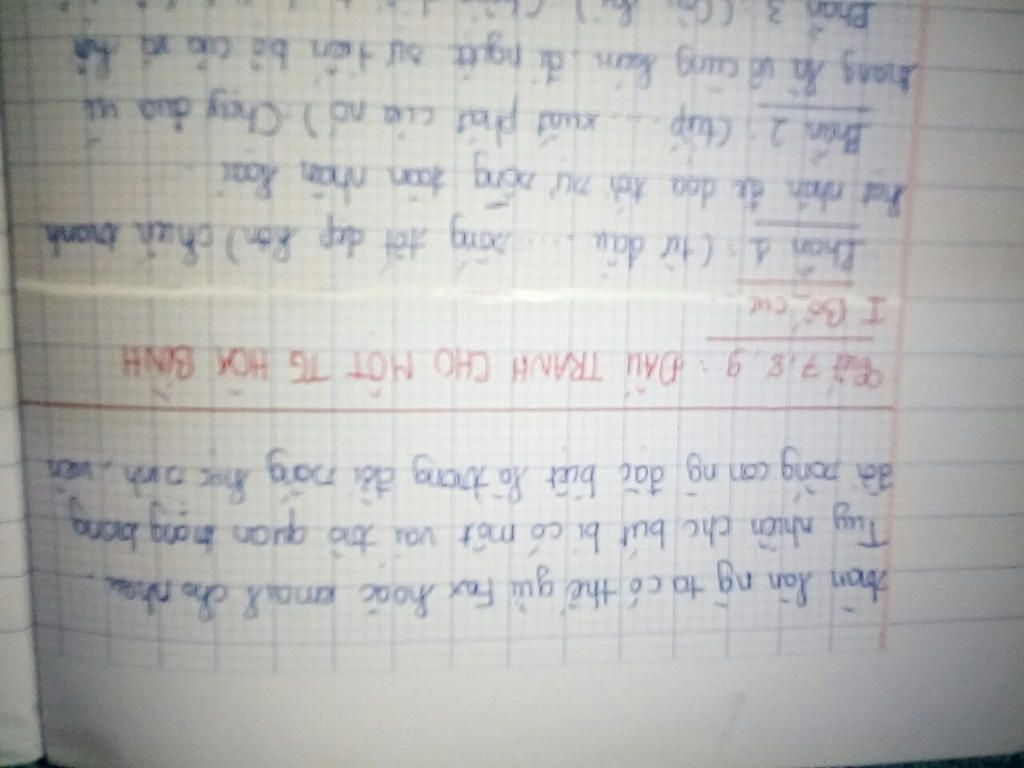 nhàn lần ng ta có thể gửi Fax hoặc email cho nhau.
Tuy nhiên chc bút bi có một vai trò quan trọng trong
đời sống con ng đặc biệt là trong đời sống học sinh, viên
7, 8, 9 : ĐẤU TRANH CHO MỘT TG HÒA BÌNH
I Bố cục
Phần 1 : (từ đầu ... sống tốt đẹp hơn) chiến tranh
hạt nhân đe doạ tới sự sống toàn nhân loài
Phần 2 : (tiếp ... xuất phát của nó) Chạy đua vũ
trang là vô cùng kém, đi ngược sự tiến bộ của xã hội
Phần 3 (Còn lại)